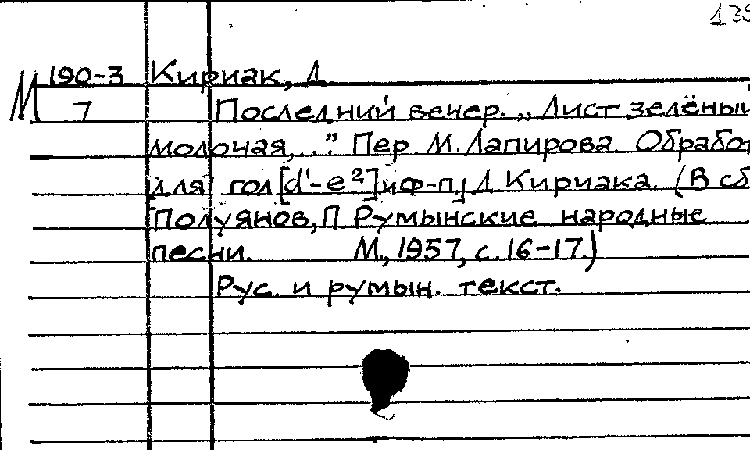 139
М 190-3 Кириак, Д.
7 Последний вечер. „Лист зелёный
молочая,..” Пер М. Лапирова. Обработ
для гол[d'-e²]иф-п,Д Кириака. (В сб
Полуянов, П Румынские народные
песни. М., 1957, с. 16-17.)
Рус. и румын. текст.